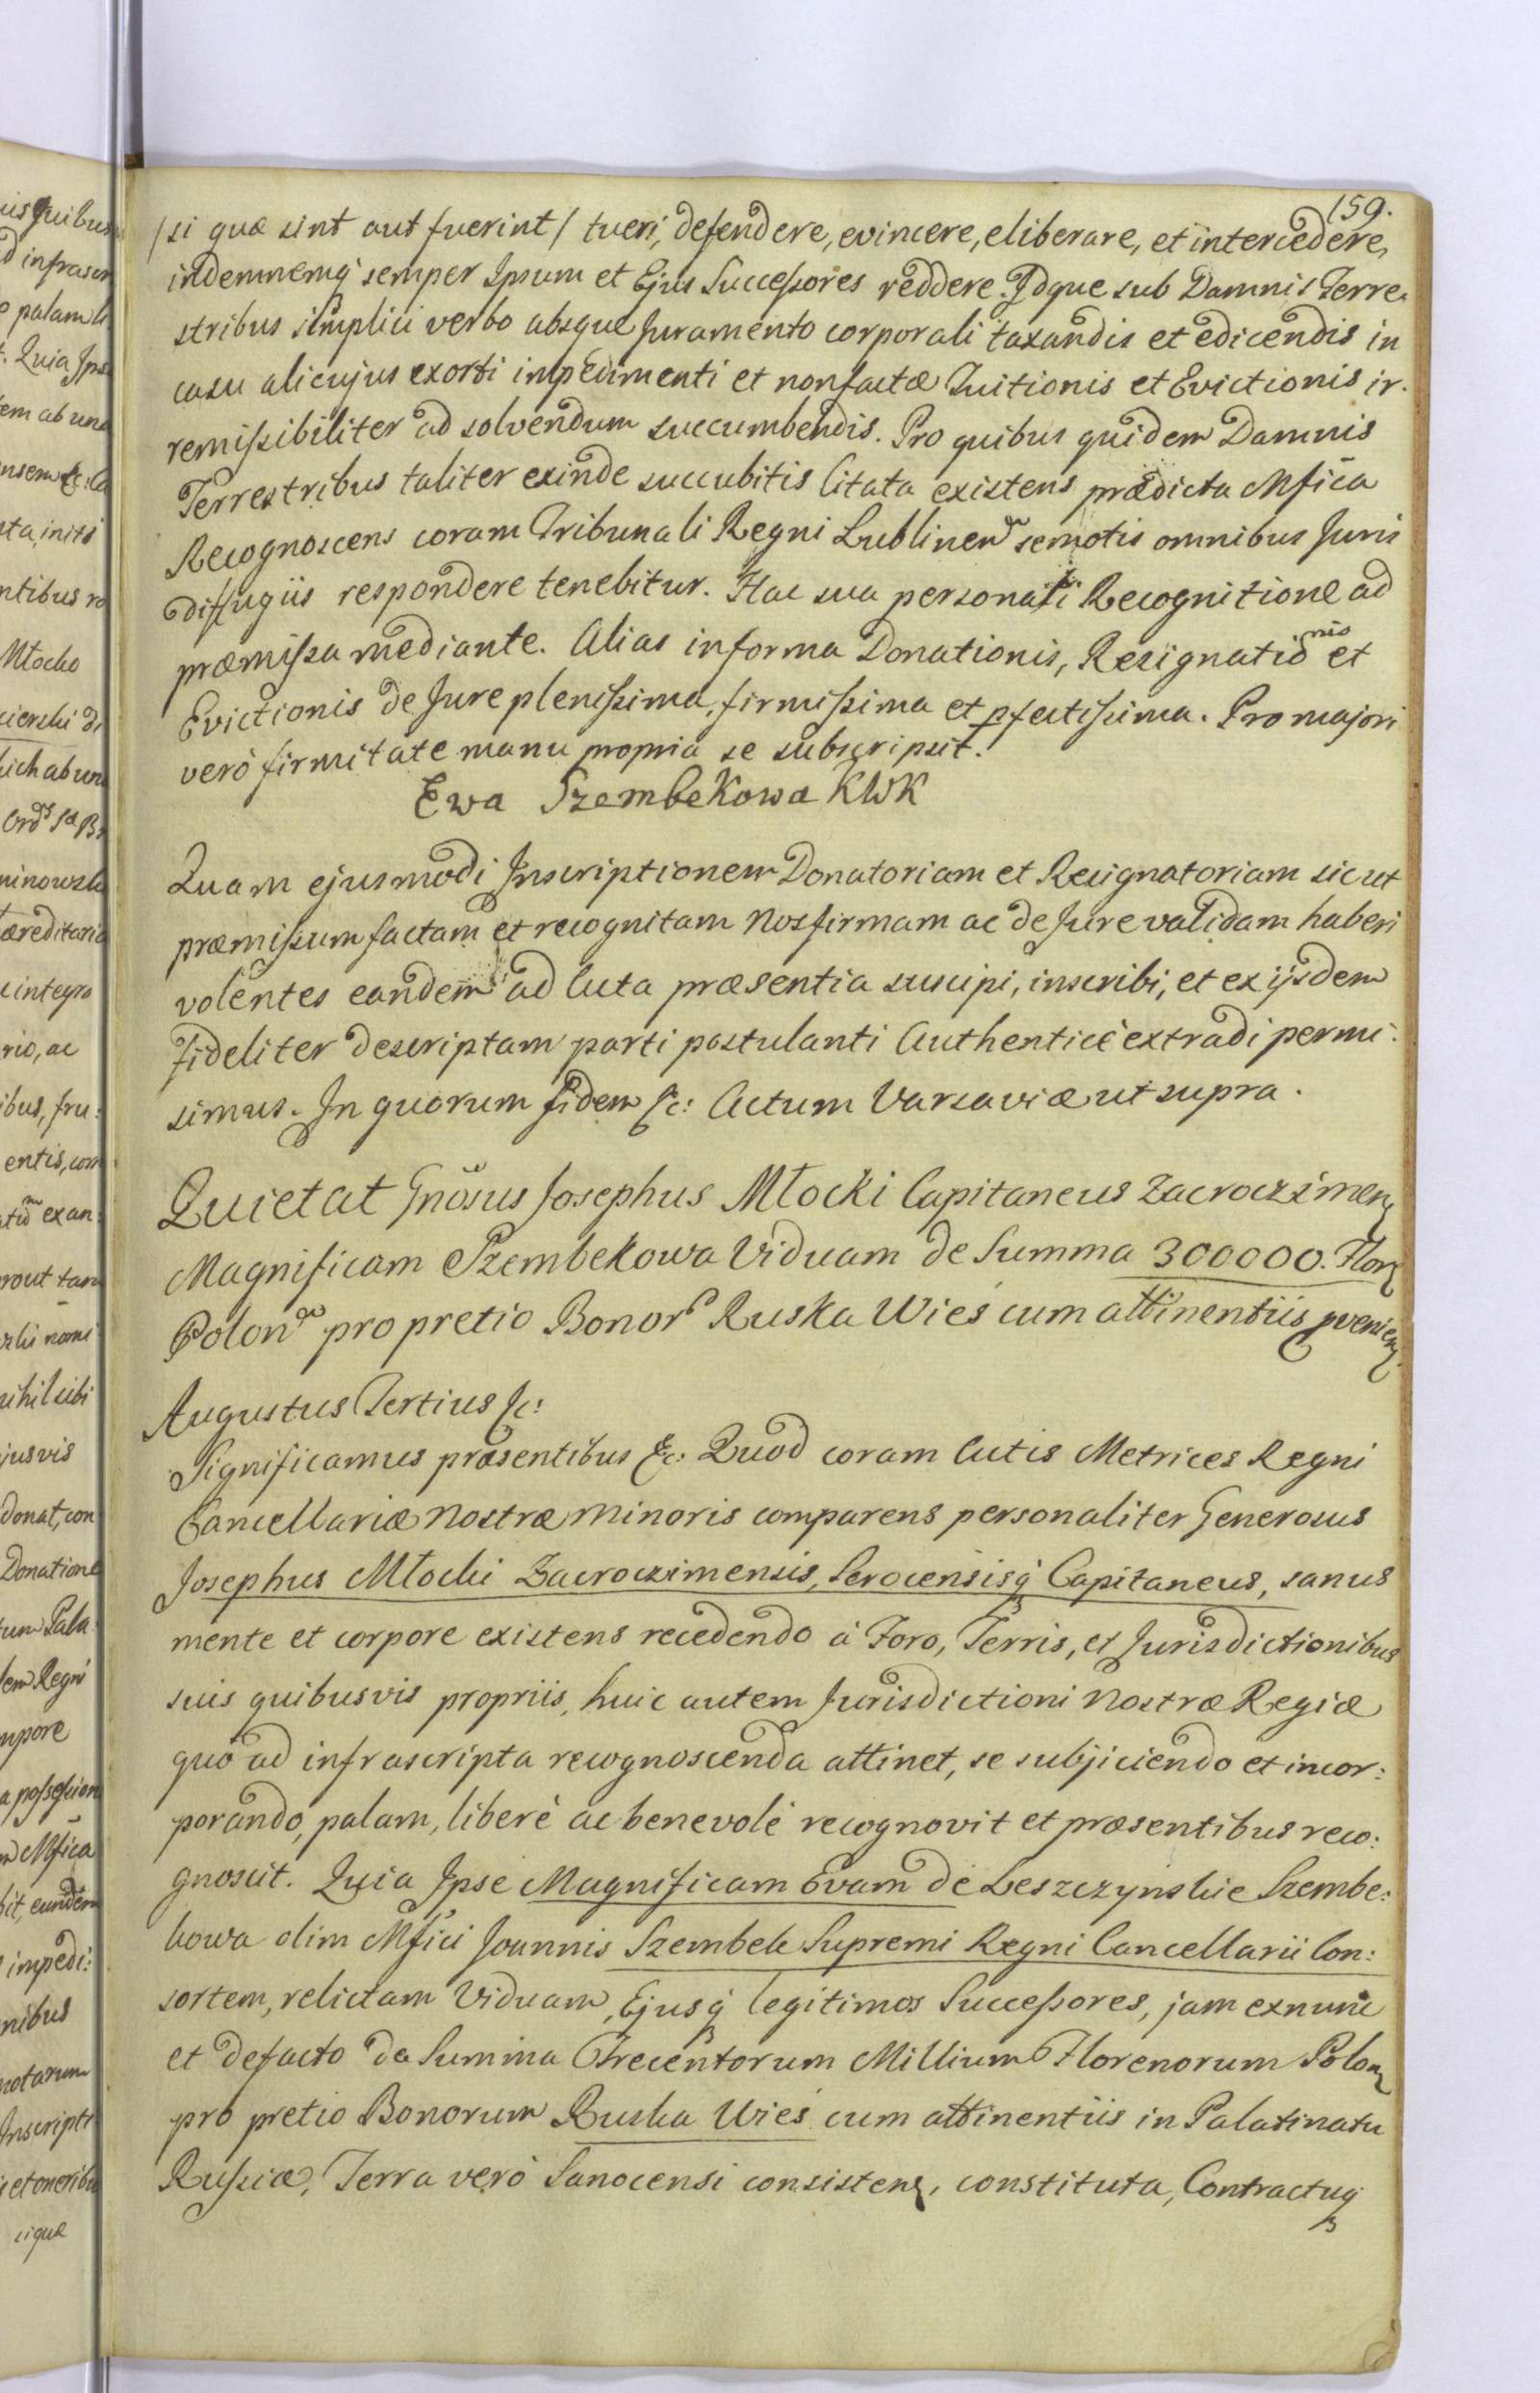 159.
/si quæ sint aut fuerint/ tueri, defendere, evincere, eliberare, et intercedere,
indemnemq́ semper Ipsum et Ejus Successores reddere. Idque sub Damnis Terre-
stribus simplici verbo absque Juramento corporali taxandis et edicendis in
casu alicujus exorti impedimenti et nonfactæ Tuitionis et Evictionis ir-
remissibiliter ad solvendum succumbendis. Pro quibus quidem Damnis
Terrestribus taliter exinde succubitis Citata existens prædicta Mfica
Recognoscens coram Tribunali Regni Lublinen semotis omnibus Juris
diffugiis respondere tenebitur. Hac sua personali Recognitione ad
præmissa mediante. Alias in forma Donationis, Resignationis et
Evictionis de Jure plenissima, firmissima et pfectissima. Pro majori
verò firmitate manu propria se subscripsit.
Ewa Szembekowa KWK
Quam ejusmodi Inscriptionem Donatoriam et Resignatoriam sicut
præmissum factam et recognitam Nos firmam ac de Jure validam haberi
volentes eandem ad Acta præsentia suscipi, inscribi, et ex ijsdem
fideliter descriptam parti postulanti Authenticè extradi permi:
simus. In quorum fidem &c: Actum Varsaviæ ut supra.
Quietat Gnosus Josephus Młocki Capitaneus Zacroczimen
Magnificam Szembekowa Viduam de Summa 300000. Flor
Polon pro pretio Bonor Ruska Wieś cum attinentiis pvenien
Augustus Tertius &c:
Significamus præsentibus &c: Quod coram Actis Metrices Regni
Cancellariæ Nostræ Minoris comparens personaliter Generosus
Josephus Młocki Zacroczimensis, Serocensisq́ Capitaneus, sanus
mente et corpore existens recedendo à Foro, Terris, et Jurisdictionibus
suis quibusvis propriis, huic autem Jurisdictioni Nostræ Regiæ
quo ad infrascripta recognoscenda attinet, se subjiciendo et incor:
porando, palam, liberè ac benevolè recognovit et præsentibus reco:
gnoscit. Quia Ipse Magnificam Evam de Leszczynskie Szembe:
kowa olim Mfici Joannis Szembek Supremi Regni Cancellarii Con:
sortem, relictam Viduam, Ejusq́ legitimos Successores, jam exnunc
et defacto de Summa Trecentorum Millium Florenorum Polon
pro pretio Bonorum Ruska Wieś cum attinentiis in Palatinatu
Russiæ, Terra verò Sanocensi consisten, constituta, Contractuq́